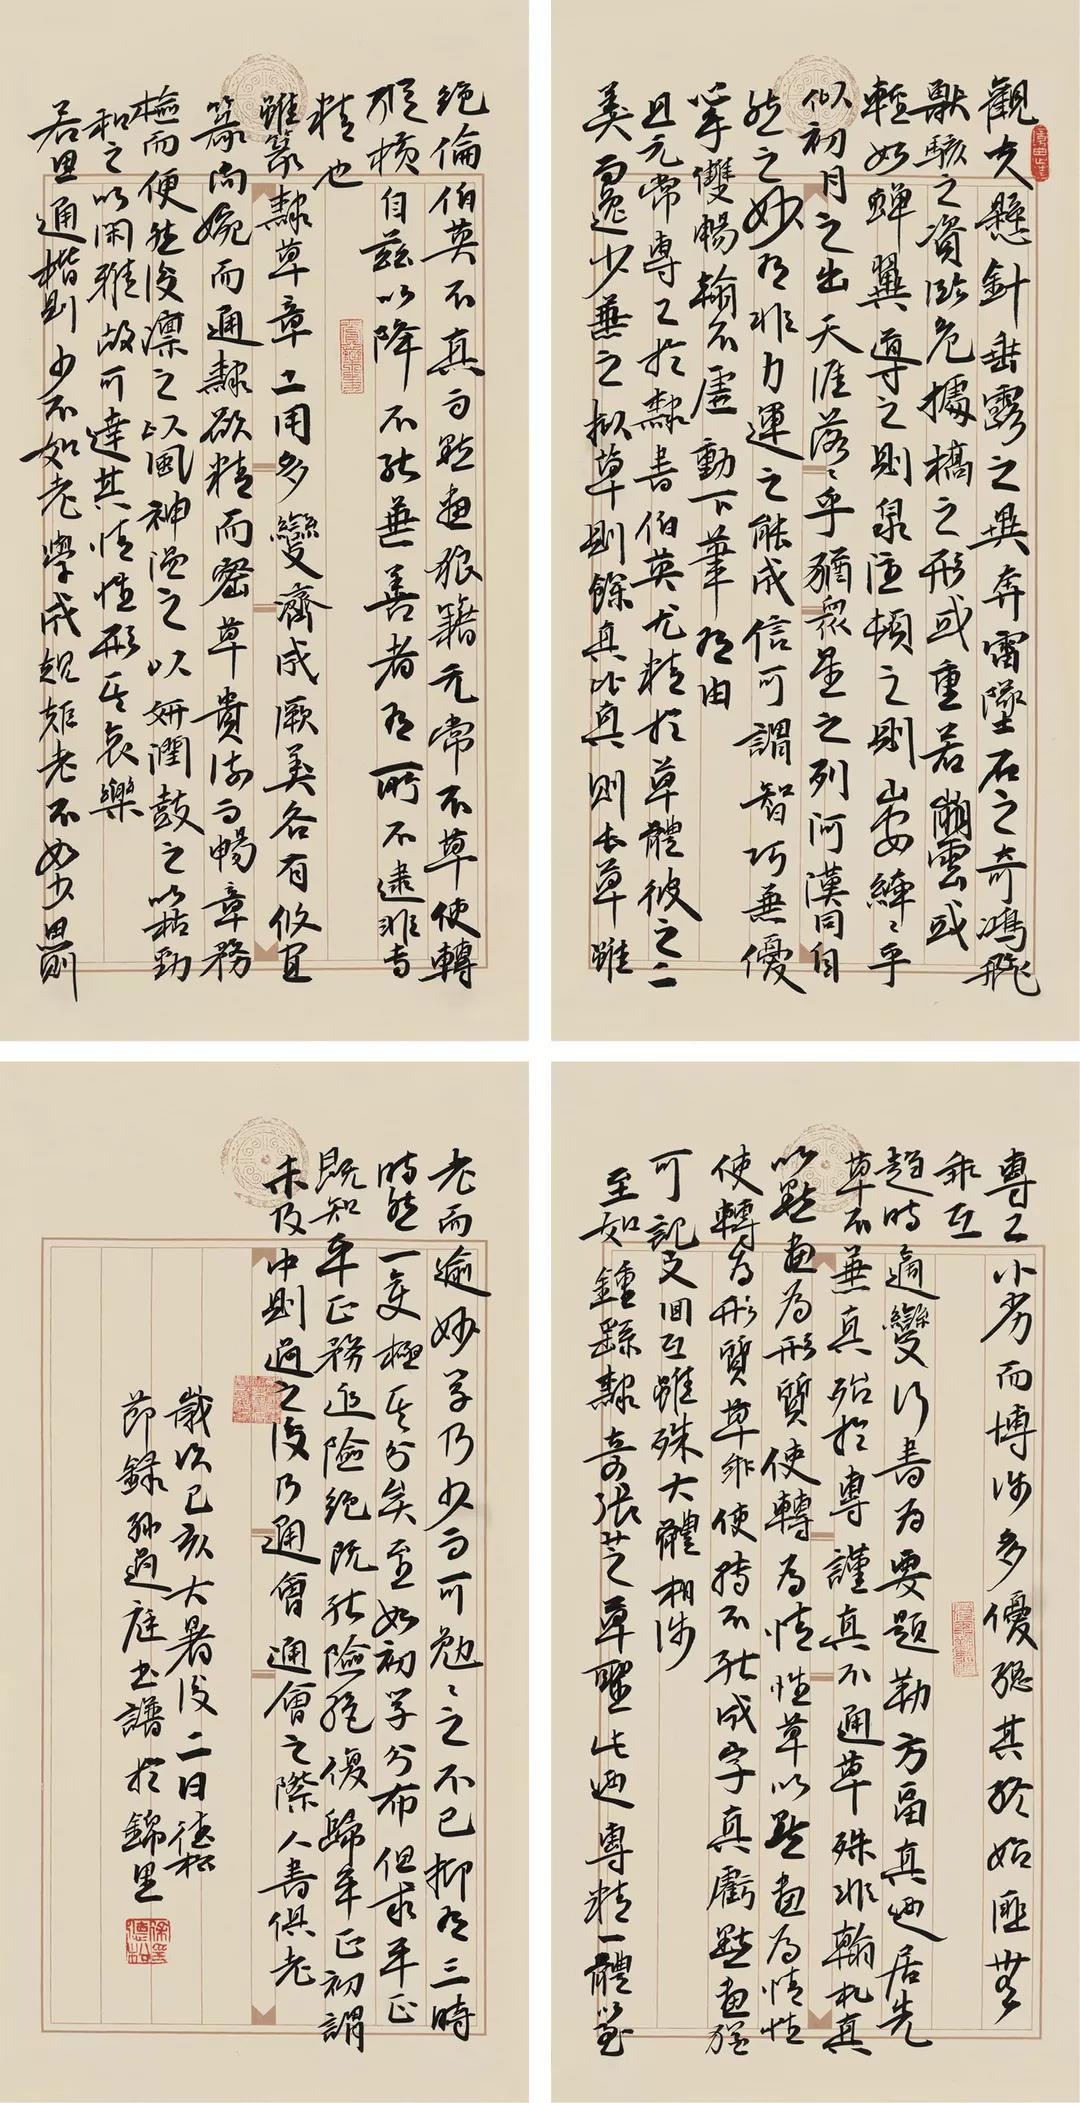 觀夫懸針垂露之異奔雷墜石之奇鴻飛
獸駭之資臨危據槁之形或重若崩雲或
輕如蟬翼導之則泉注頓之則山安纖〻乎
似初月之出天涯落〻乎猶眾星之列河漢同自
然之妙有非力運之能成信可謂智巧兼優
心手雙暢翰不虛動下筆有由
且元常專工於隸書伯英尤精於草體彼之二
美而逸少兼之擬草則餘真比真則長草雖
專工小劣而博涉多優總其終始匪無
乖互
趨時適變行書為要題勒方畐真乃居先
草不兼真殆於專謹真不通草殊非翰札真
以點畫為形質使轉為情性草以點畫為情性
使轉為形質草乖使轉不能成字真虧點畫猶
可記文回互雖殊大體相涉
至如鍾繇隸奇張芝草聖此迺專精一體以致
絕倫伯英不真而點畫狼籍元常不草使轉
縱橫自茲以降不能兼善者有所不逮非專
精也
雖篆隸草章工用多變濟成厥美各有攸宜
篆尚婉而通隸欲精而密草貴流而暢章務
檢而便然後凜之以風神溫之以妍潤鼓之以枯勁
和之以閑雅故可達其情性形其哀樂
若思通楷則少不如老學成規矩老不如少思則
老而逾妙學乃少而可勉〻之不已抑有三時
時然一變極其分矣至如初學分布但求平正
既知平正務追險絕既能險絕復歸平正初謂
未及中則過之後乃通會通會之際人書俱老
歲次己亥大暑後二日德松
節錄孫過庭書譜於錦里